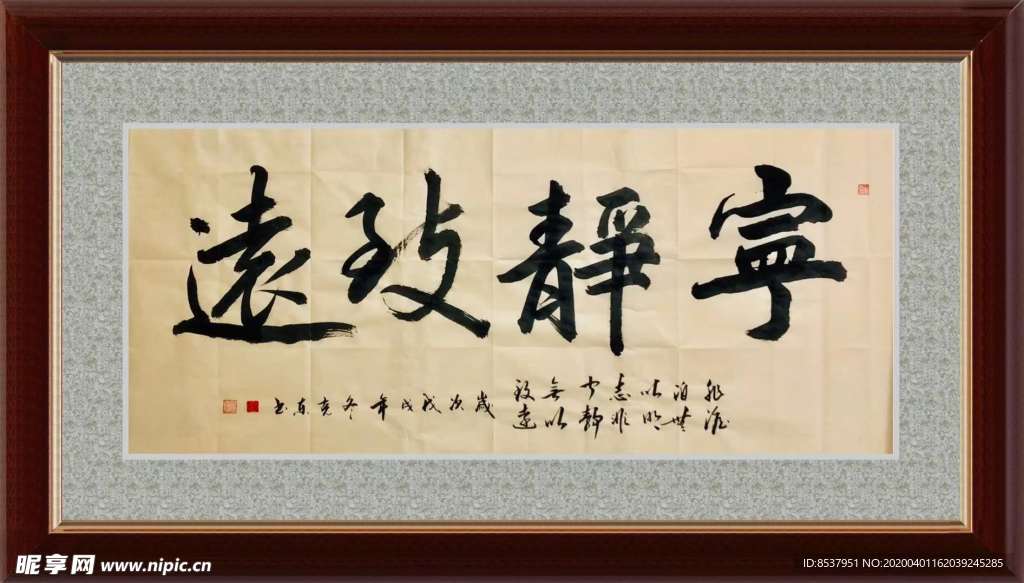 寧靜致遠
非淡
泊無
以明
志非
宁静
無以
致遠
歲次戊戌年冬
昵享网 www.nipic.cn
ID:8537951 NO:20200401162039245285